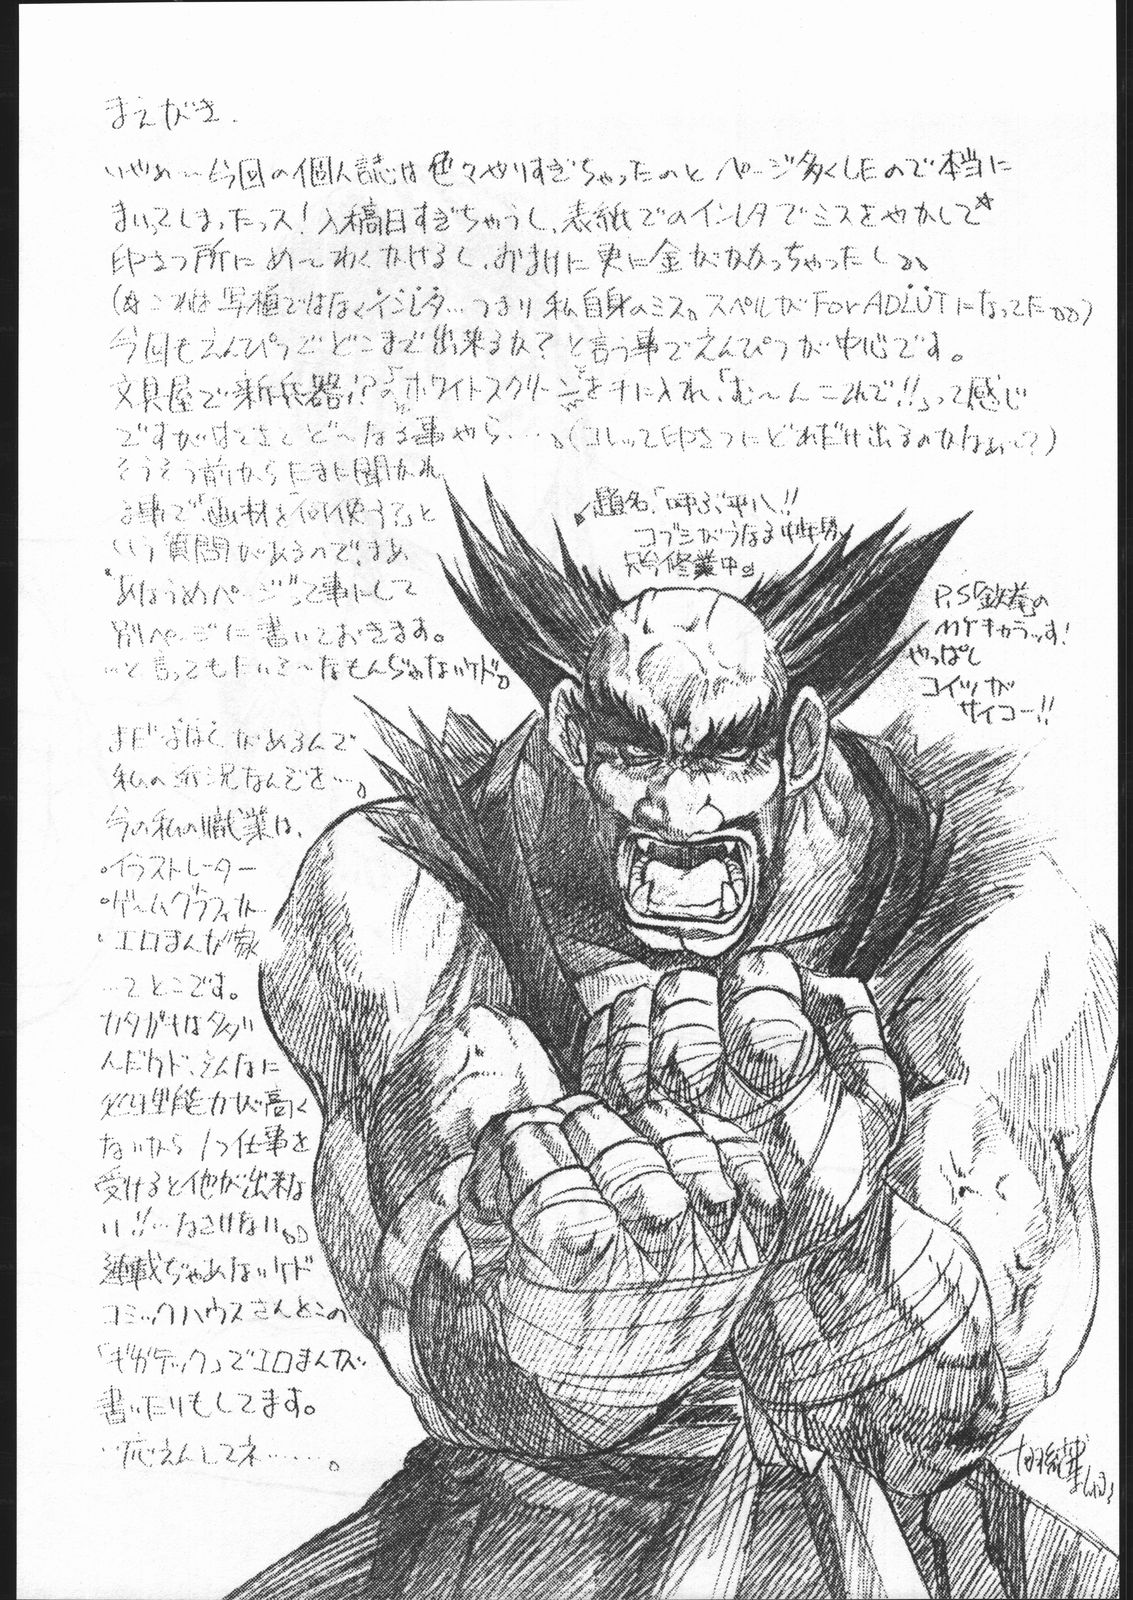 まえがき.
いやぁ…今回の個人誌は色々やりすぎちゃったのとページ多くしたので本当に
まいってしまったっス!入稿日すぎちゃうし、表紙でのインレタでミスをやかして☆
印さつ所にめーわくかけるし、おまけに更に金がかかっちゃったし。
(☆これは写植ではなくインレタ…つまり私自身のミス。スペルがFor ADLUTになってた)
今回もえんぴつでどこまで出来るか?と言う事でえんぴつが中心です。
文具屋で新兵器!?の「ホワイトスクリーン」を手に入れ「む〜んこれで!!」って感じ
ですがはてさてど〜なる事やら…。(コレって印さつにどれだけ出るのかなぁ…?)
そうそう前からたまに聞かれ
る事で「画材を何使う?」と
いう質問があるので、まぁ
"あなうめページ"って事にして
別ページに書いておきます。
…と言ってもたいそ〜なもんぢゃないケド。
まだよはくがあるんで
私の近況なんでを…。
今の私の職業は、
・イラストレーター
・ゲームグラフィッカー
・エロまんが家
…てとこです。
カタガキはダブい
んだケド、そんなに
処理能力が高く
ないから1つ仕事を
受けると他が出来な
い!!…なさけない。
連載ぢゃあないケド
コミックハウスさんとこの
「ギガテック」でエロまんが
書いたりもしてます。
…応えんしてネ……。
題名、「呼ぶ平八!!
コブシがうなる
只今修業中」
P,S「鉄拳」の
MYキャラっす!
やっぱし
コイツが
サイコー!!